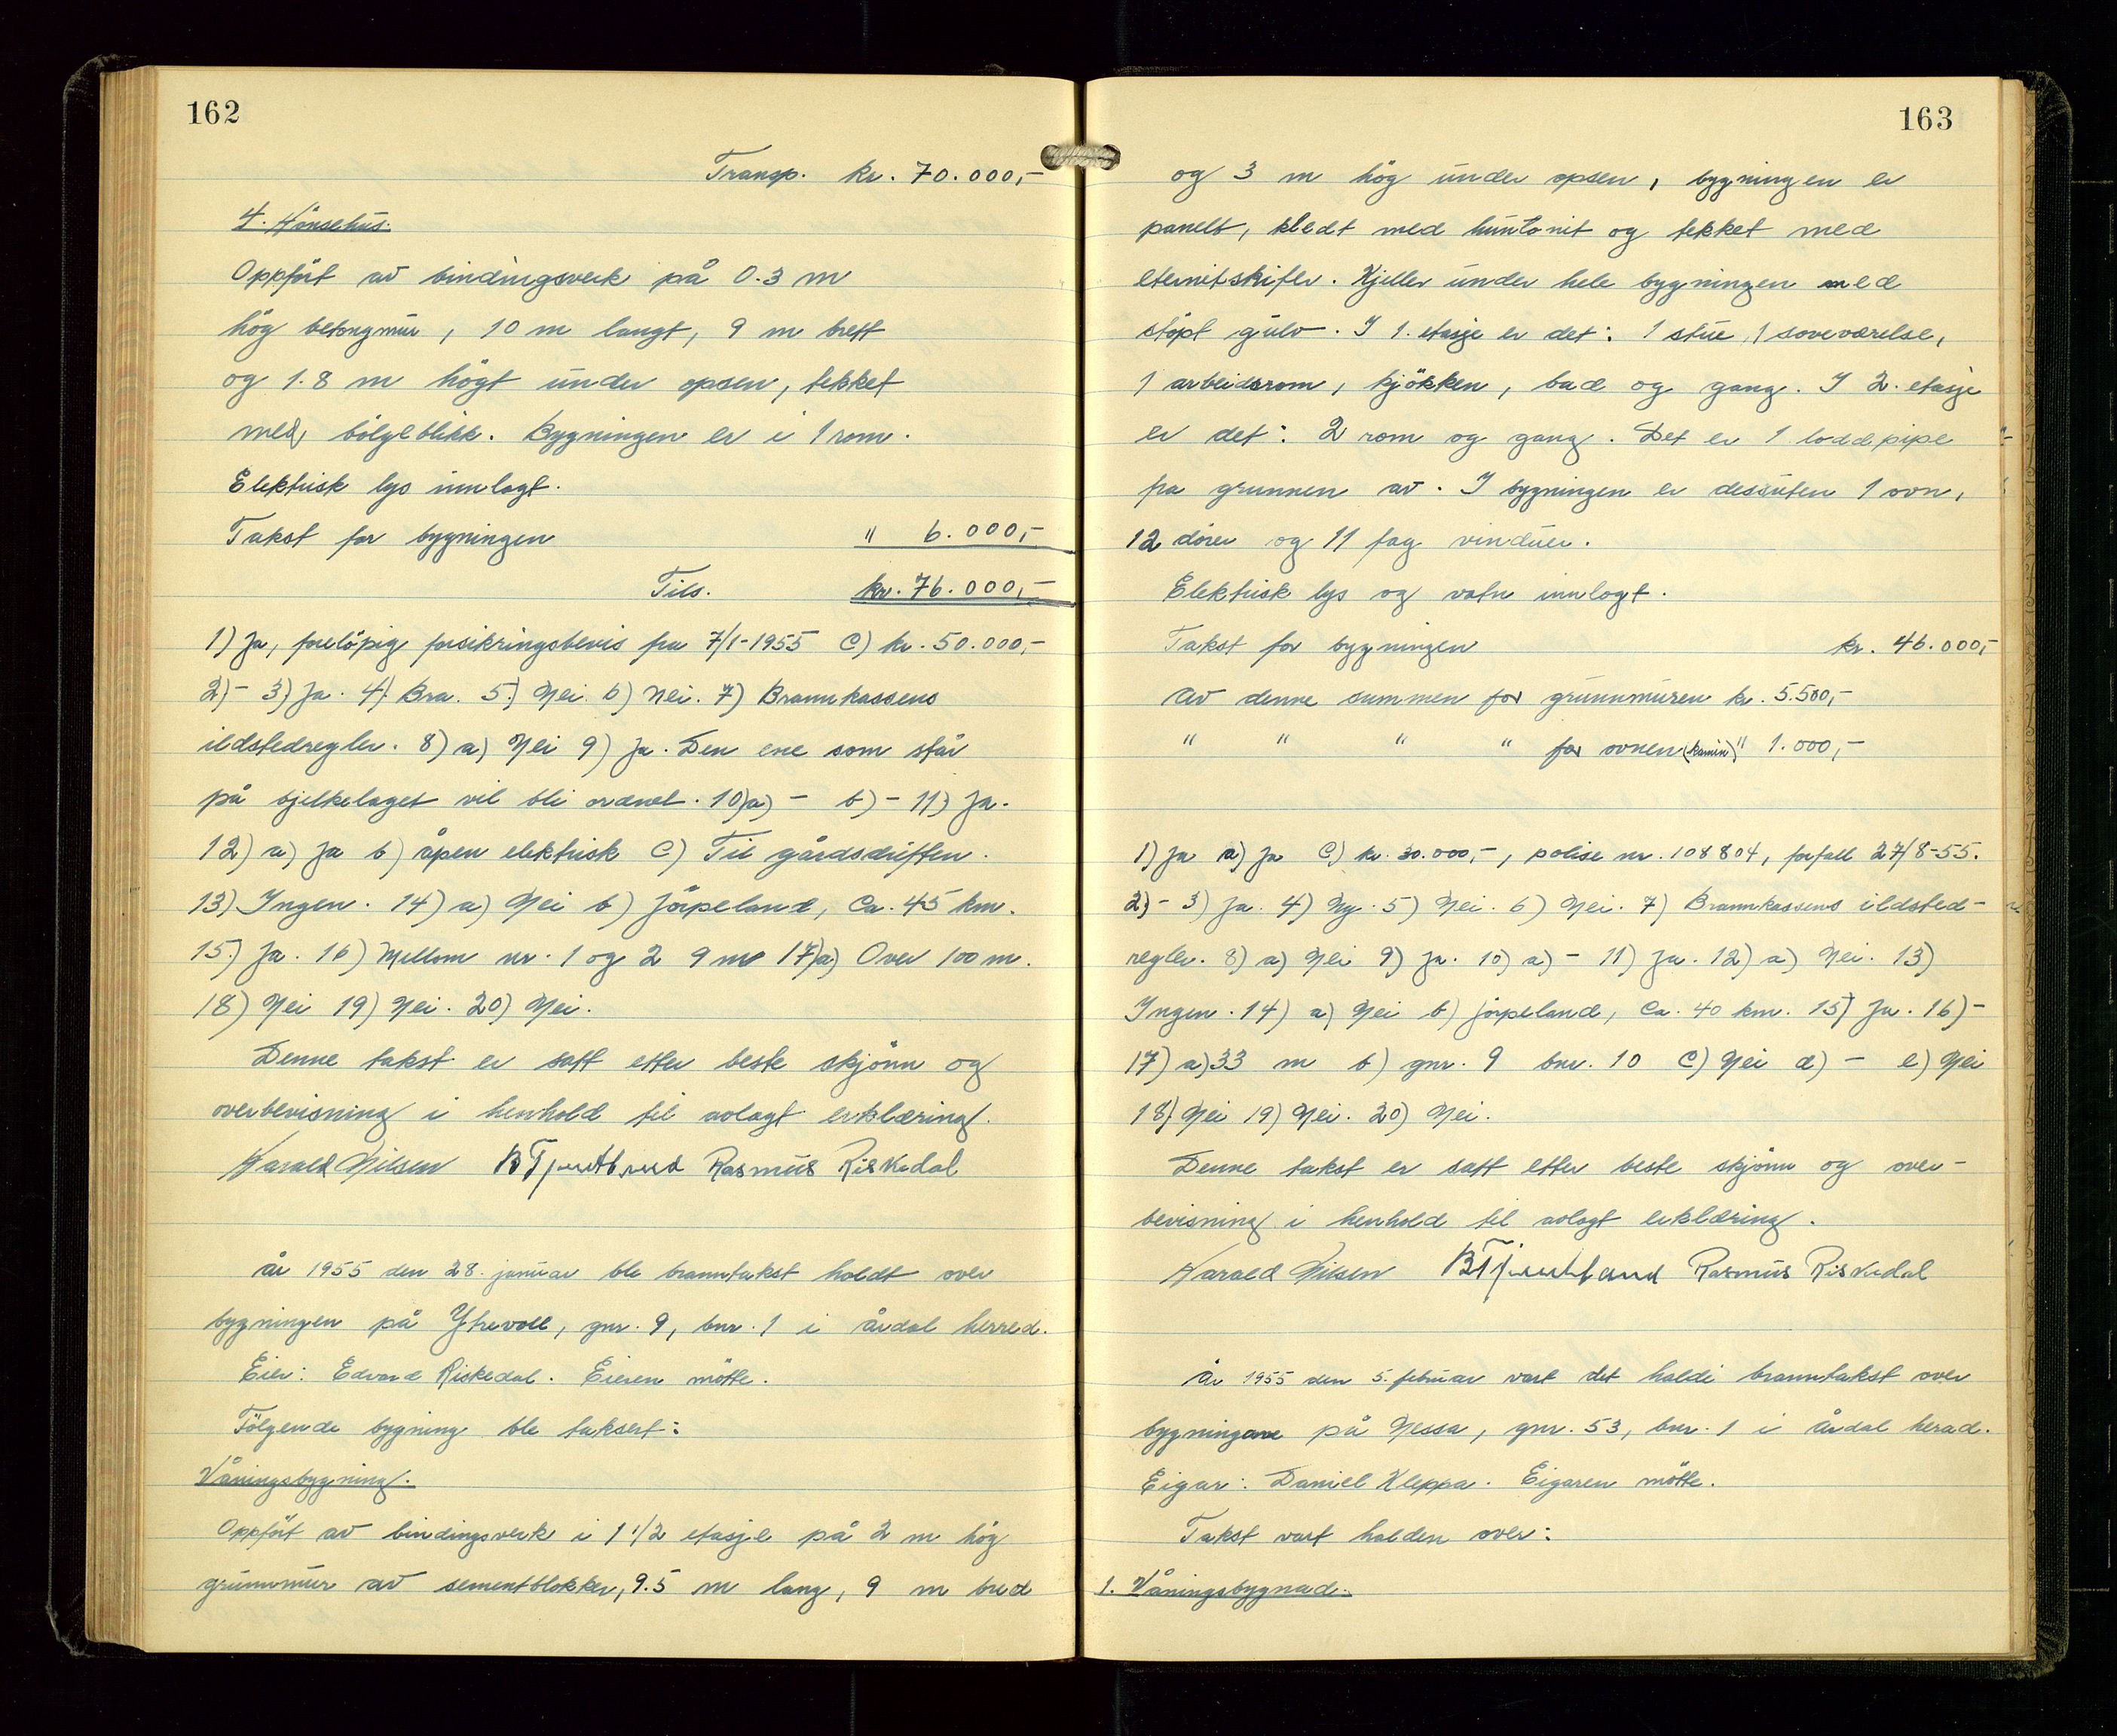 162
Transp. kr. 70.000,-
4. Hönsehus.
Oppfört av bindingsverk på 0.3 m
hög betongmur, 10 m langt, 9 m brett
og 1.8 m högt under opsen, tekket
med bölgeblikk. Bygningen er i 1 rom.
Elektrisk lys innlagt.
Takst for bygningen " 6.000,-
Tils. kr. 76.000,-
1) Ja, forelöpig forsikringsbevis fra 7/1-1955 C) kr. 50.000,-
2) - 3) Ja. 4) Bra. 5) Nei. 6) Nei. 7) Brannkassens
ildstedregler. 8) a) Nei 9) Ja. Den ene som står
på bjelkelaget vil bli ordnet. 10) a) - b) - 11) Ja.
12) a) Ja b) åpen elektrisk C) Til gårdsdriften.
13) Ingen. 14) a) Nei b) Jörpeland, Ca. 45 km.
15) Ja. 16) Mellom nr. 1 og 2 9 m 17) a) Over 100 m.
18) Nei 19) Nei. 20) Nei.
Denne takst er satt etter beste skjönn og
overbevisning i henhold til avlagt erklæring.
Harald Nilsen Rasmus Riskedal
År 1955 den 28. januar ble branntakst holdt over
bygningen på Ytrevoll, gnr. 9, bnr. 1 i Årdal herred.
Eier: Edvard Riskedal. Eieren mötte.
Fölgende bygning ble taksert:
Våningsbygning.
Oppfört av bindingsverk i 1 1/2 etasje på 2 m hög
grunnmur av sementblokker, 9.5 m lang, 9 m bred
163
og 3 m hög under opsen, bygningen er
panelt, kledt med huntonit og tekket med
eternitskifer. Kjeller under hele bygningen med
stöpt gulv. I 1. etasje er det: 1 stue, 1 soveværelse,
1 arbeidsrom, kjökken, bad og gang. I 2. etasje
er det: 2 rom og gang. Det er 1 loddpipe
fra grunnen av. I bygningen er dessuten 1 ovn,
12 dörer og 11 fag vinduer.
Elektrisk lys og vatn innlagt.
Takst for bygningen kr. 46.000,-
Av denne summen for grunnmuren kr. 5.500,-
" " " " for ovnen (kamin) " 1.000,-
1) Ja a) Ja C) kr. 30.000,-, polise nr. 108804, forfall 27/8-55.
2) - 3) Ja. 4) Ny. 5) Nei. 6) Nei. 7) Brannkassens ildsted-
regler. 8) a) Nei 9) Ja. 10) a) - 11) Ja. 12) a) Nei. 13)
Ingen. 14) a) Nei b) Jörpeland, Ca. 40 km. 15) Ja. 16) -
17) a) 33 m b) gnr. 9 bnr. 10 C) Nei d) - e) Nei
18) Nei 19) Nei. 20) Nei.
Denne takst er satt etter beste skjönn og over-
bevisning i henhold til avlagt erklæring.
Harald Nilsen Rasmus Riskedal
År 1955 den 5. februar vart det haldi branntakst over
bygningane på Nessa, gnr. 53, bnr. 1 i Årdal herad.
Eigar: Daniel Kleppa. Eigaren mötte.
Takst vart halden over:
1. Våningsbygnad.